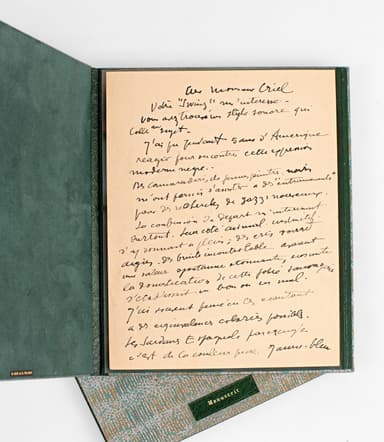 Cher Monsieur Criel
Votre "Swing" m'intéresse.
Vous avez trouvé un style sonore qui
Colle au sujet.
J'ai pu pendant 5 ans d'Amérique
réagir pour ou contre cette expression
moderne nègre.
De camarades, de jeunes peintres, noirs
m'ont fait assister à des "instruments"
pour des recherches de Jazz nouveaux.
La confusion du départ m'intéressait
surtout. Son côté animal, instinctif
s'y donnant à plein; des cris sourds
aigus. des bruits incontrôlables avaient
une valeur spontanée étonnante, ensuite
la domestication de cette folie sonore
s'établissait en bon ou en mal.
J'ai souvent pensé en les écoutant
à des équivalences colorées possibles.
Les Jardins Espagnols
c'est de la couleur pure. Jaune-bleu
Manuscrit